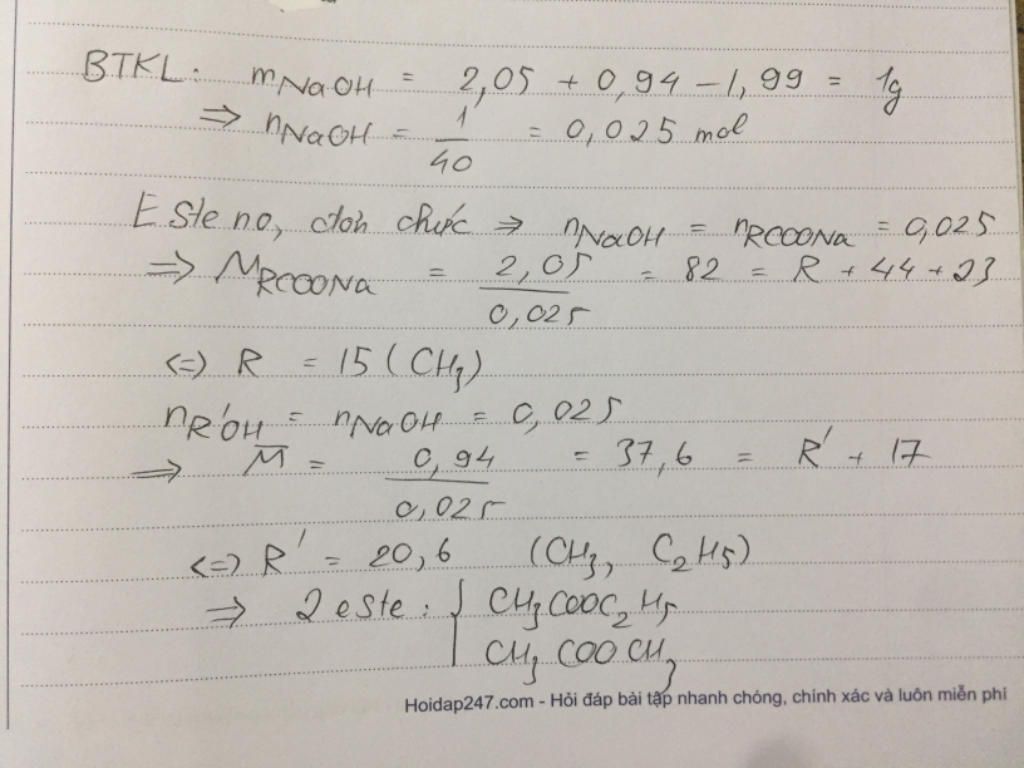 BTKL: mNaOH = 2,05 + 0,94 - 1,99 = 1g
=> nNaOH = 1/40 = 0,025 mol
Este no, đơn chức => nNaOH = nRCOONa = 0,025
=> MRCOONa = 2,05/0,025 = 82 = R + 44 + 23
<=> R = 15 (CH3)
nR'OH = nNaOH = 0,025
=> M̅ = 0,94/0,025 = 37,6 = R' + 17
<=> R' = 20,6 (CH3, C2H5)
=> 2 este: { CH3COOC2H5
CH3COOCH3
Hoidap247.com - Hỏi đáp bài tập nhanh chóng, chính xác và luôn miễn phí